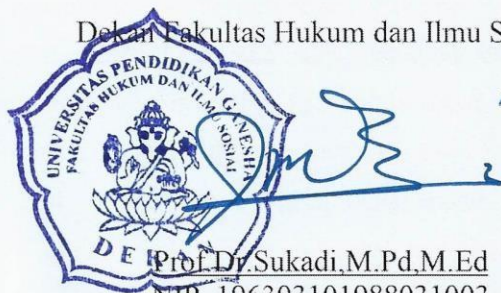 Dekan Fakultas Hukum dan Ilmu S
UNIVERSITAS PENDIDIKAN GANESHA
FAKULTAS HUKUM DAN ILMU SOSIAL
DEKAN
Prof.Dr.Sukadi,M.Pd,M.Ed
NIP. 196303101988031003